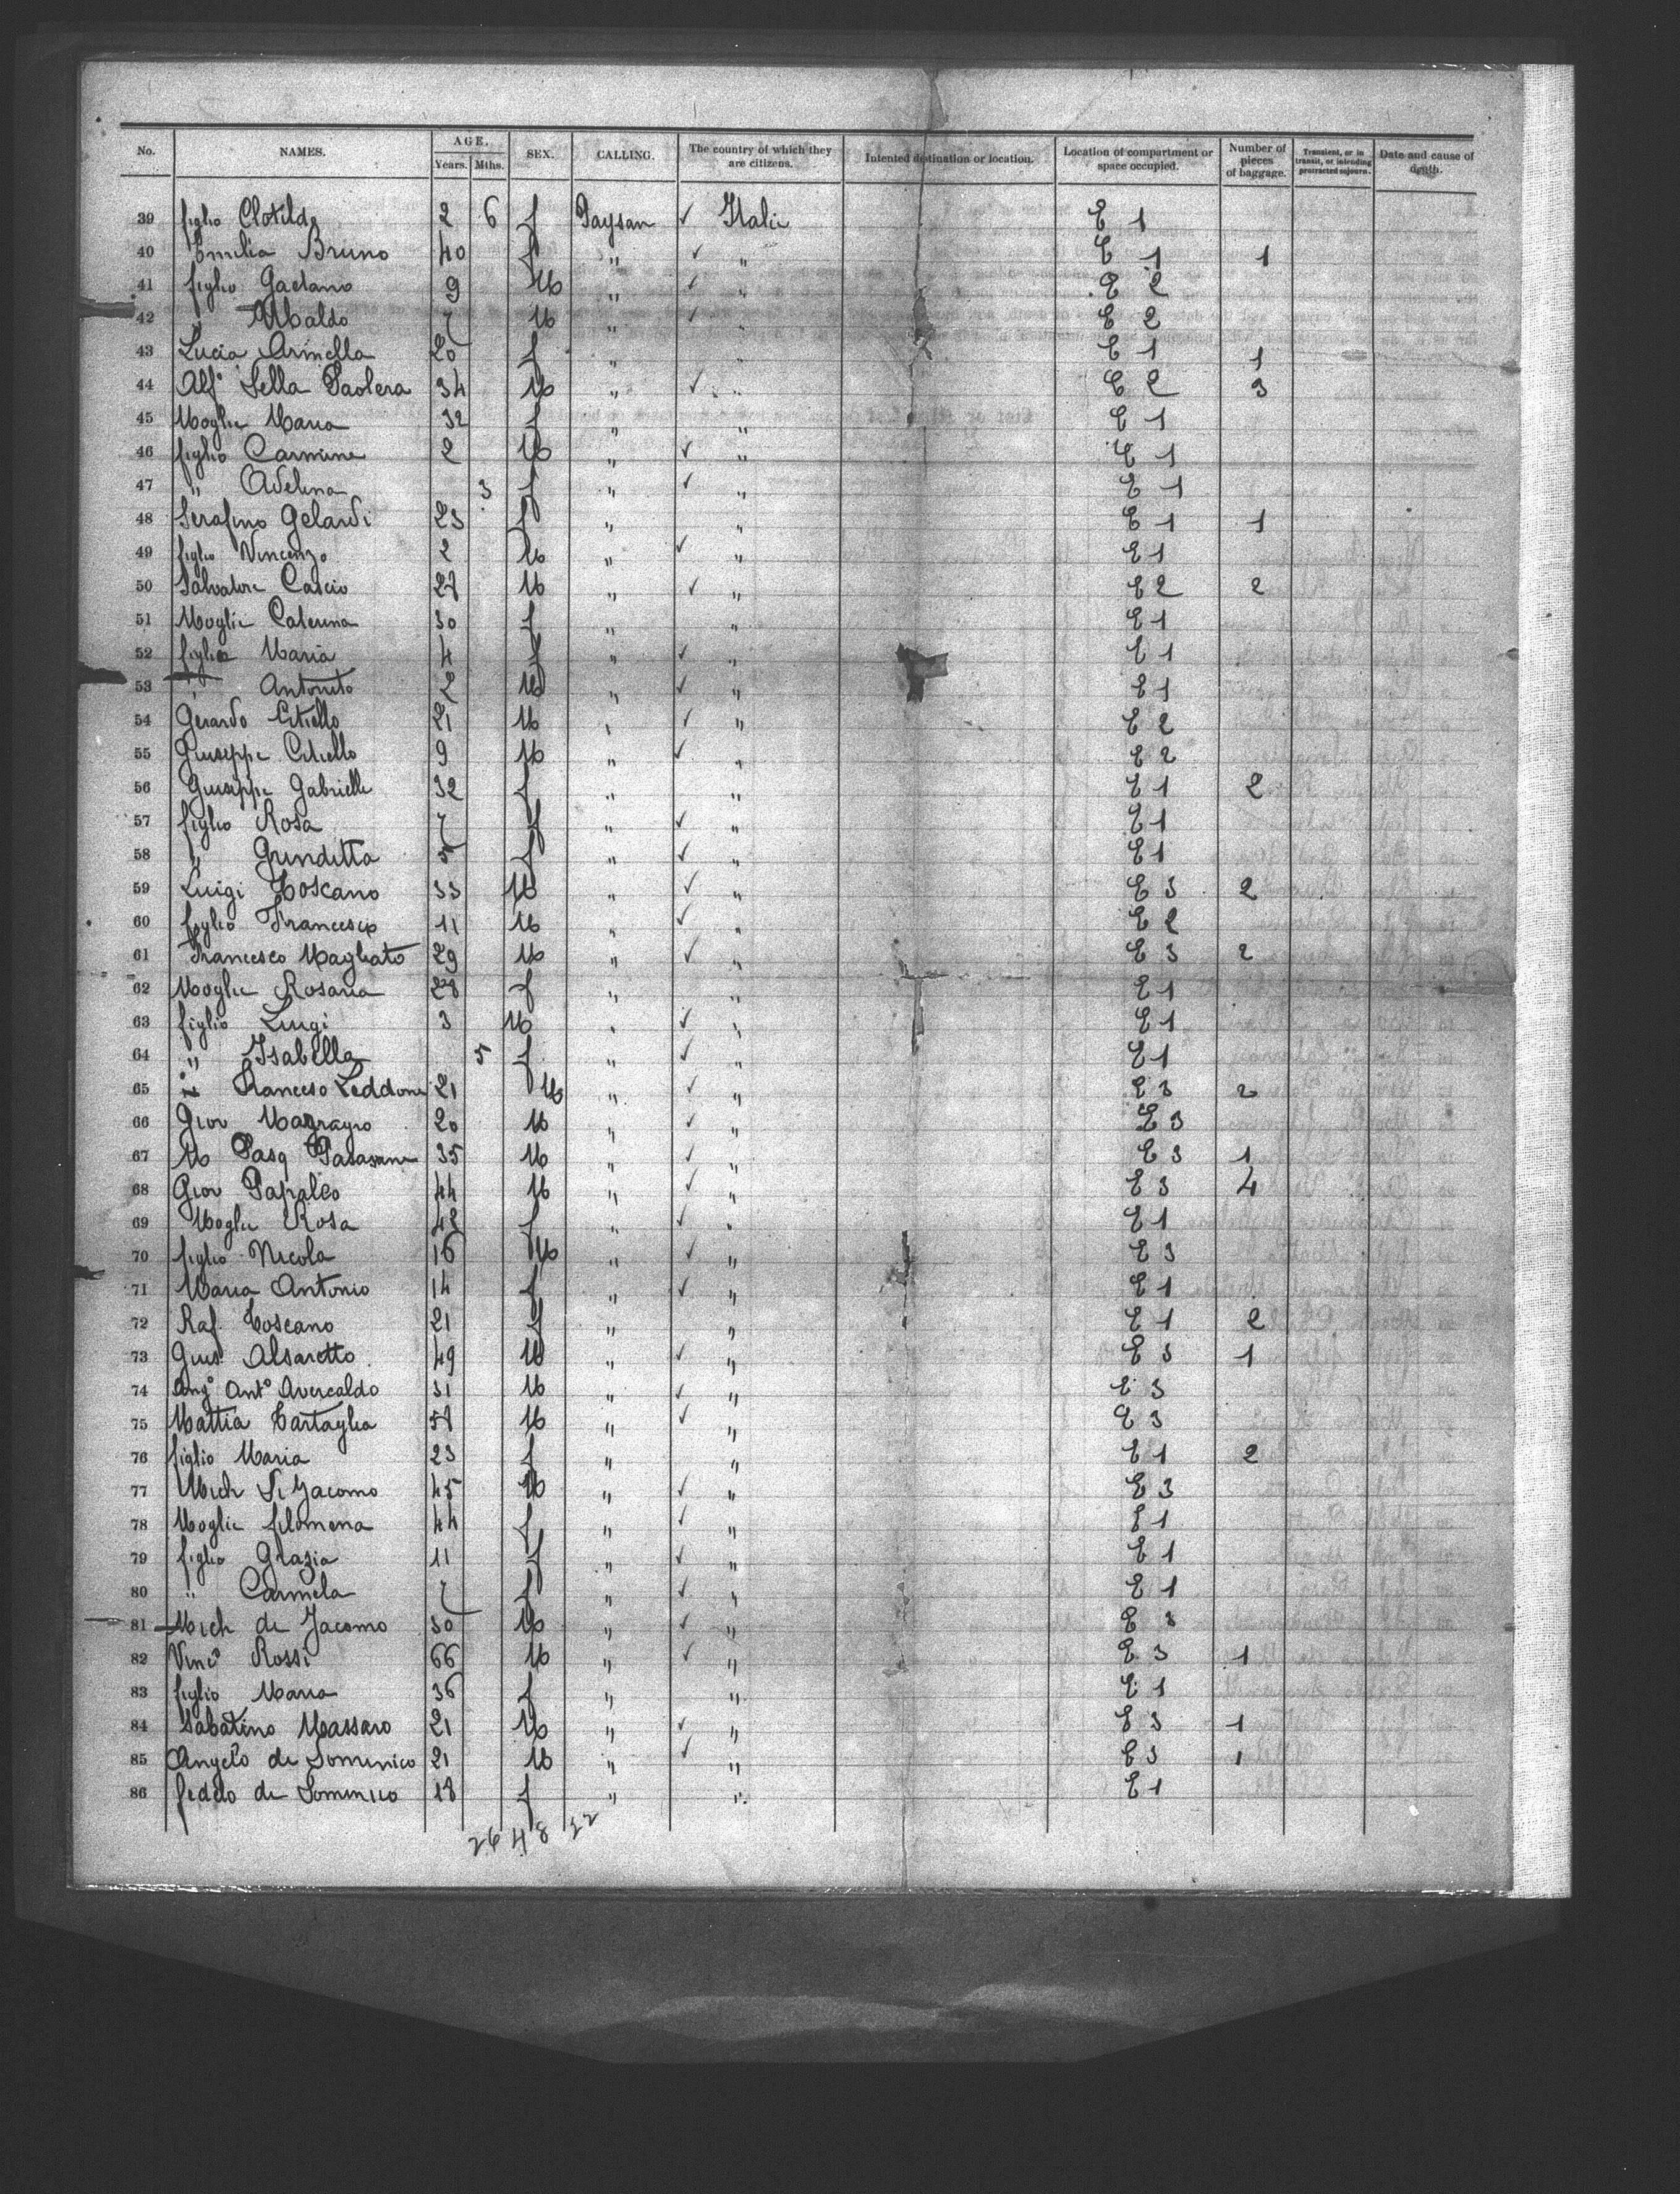 No. NAMES. AGE. Years. Mths. SEX. CALLING. The country of which they are citizens. Intented destination or location. Location of compartment or space occupied. Number of pieces of baggage. Transient, or in transit, or intending protracted sojourn. Date and cause of death.
39 figlio Clotilde 2 6 f Paysan ✓ Italie E 1
40 Emilia Bruno 40 f " ✓ " E 1 1
41 figlio Gaetano 9 M " ✓ " E 2
42 " Ubaldo 7 M " ✓ " E 2
43 Lucia Arinella 20 f " " E 1 1
44 Alfo Della Paolera 34 M " ✓ " E 2 3
45 Moglie Maria 32 f " " E 1
46 figlio Carmine 2 M " ✓ " E 1
47 " Adelina 3 f " ✓ " E 1
48 Serafino Gelardi 23 f " " E 1 1
49 figlio Vincenzo 2 M " ✓ " E 1
50 Salvatore Cascio 27 M " ✓ " E 2 2
51 Moglie Caterina 30 f " " E 1
52 figlia Maria 4 f " ✓ " E 1
53 " Antonito 2 M " ✓ " E 1
54 Gerardo Citiello 21 M " ✓ " E 2
55 Giuseppe Citiello 9 M " ✓ " E 2
56 Giuseppe Gabrielle 32 f " " E 1 2
57 figlio Rosa 7 f " ✓ " E 1
58 " Giuditta 5 f " ✓ " E 1
59 Luigi Toscano 33 M " ✓ " E 3 2
60 figlio Francesco 11 M " ✓ " E 2
61 Francesco Magliato 29 M " ✓ " E 3 2
62 Moglie Rosaria 28 f " " E 1
63 figlio Luigi 3 M " ✓ " E 1
64 " Isabella 5 f " ✓ " E 1
65 Francesco Leddone 21 M " ✓ " E 3 2
66 Giov 20 M " ✓ " E 3
67 M Pasq 35 M " ✓ " E 3 1
68 Giov Papaleo 44 M " ✓ " E 3 4
69 Moglie Rosa 42 f " ✓ " E 1
70 figlio Nicola 16 M " ✓ " E 3
71 Maria Antonio 14 f " ✓ " E 1
72 Raf. Toscano 21 f " " E 1 2
73 Gius. Alsaretto 49 M " ✓ " E 3 1
74 Ango Anto Avercaldo 31 M " ✓ " E 3
75 Mattia Tartaglia 57 M " ✓ " E 3
76 figlio Maria 23 f " " E 1 2
77 Mich Di Jacomo 45 M " ✓ " E 3
78 Moglie filomena 44 f " ✓ " E 1
79 figlio Grazia 11 f " ✓ " E 1
80 " Carmela 7 f " ✓ " E 1
81 Mich di Jacomo 30 M " ✓ " E 3
82 Vinco Rossi 66 M " ✓ " E 3 1
83 figlio Maria 36 f " " E 1
84 Sabatino Massaro 21 M " ✓ " E 3 1
85 Angelo di Dominico 21 M " ✓ " E 3 1
86 fedelo di Dominico 18 f " " E 1
26 48 22